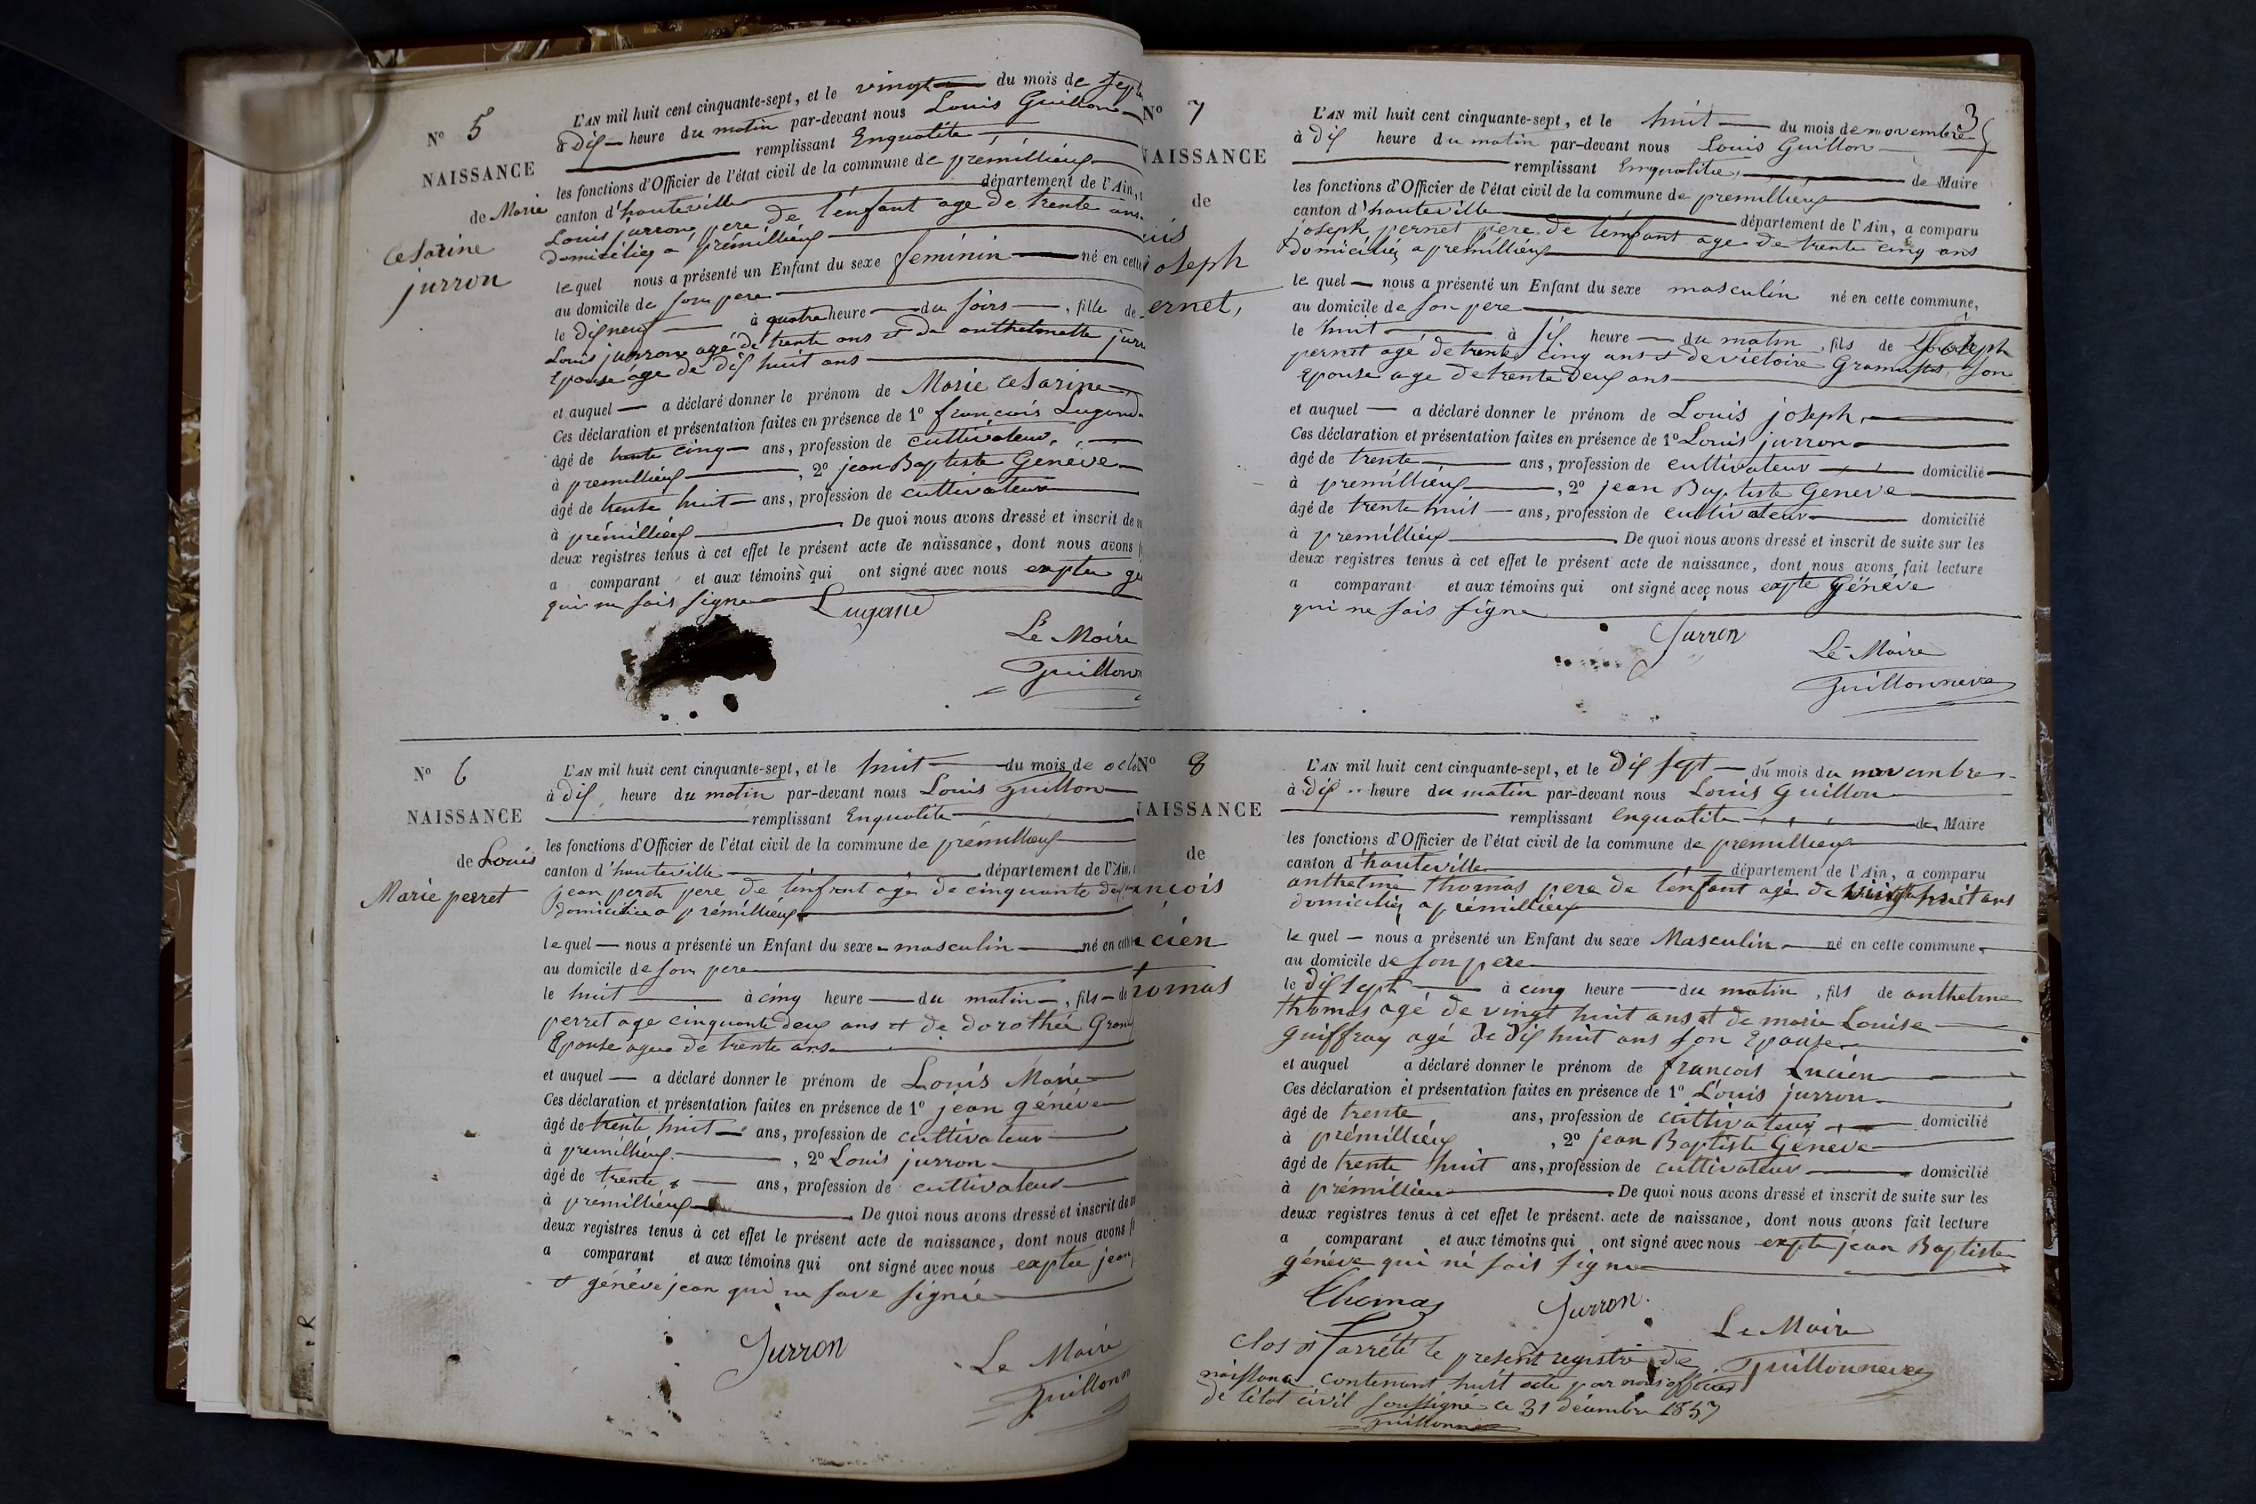 N° 5
NAISSANCE
de Marie
cesarine
jurron
L'AN mil huit cent cinquante-sept, et le vingt du mois de
à dix heure du matin par-devant nous Louis Guillon
remplissant Enqualité
les fonctions d'Officier de l'état civil de la commune de prémillieux
canton d'hauteville département de l'Ain,
Louis jurron, pere de l'enfant age de trente ans
domiciliez a prémillieux
lequel nous a présenté un Enfant du sexe feminin né en cette
au domicile de son pere
le dixneuf à quatre heure du soirs, fille de
Louis jurron agé de trente ans et de anthelmette
Epouse age de dix huit ans
et auquel a déclaré donner le prénom de Marie cesarine
Ces déclaration et présentation faites en présence de 1° francois Lugand
âgé de trente cinq ans, profession de cultivateur,
à premillieux, 2° jean Baptiste Geneve
âgé de trente huit ans, profession de cultivateur
à prémillieux De quoi nous avons dressé et inscrit de
deux registres tenus à cet effet le présent acte de naissance, dont nous avons
a comparant et aux témoins qui ont signé avec nous
qui ne sais signe
Lugand
Le Maire
N° 6
NAISSANCE
de Louis
Marie perret
L'AN mil huit cent cinquante-sept, et le huit du mois de
à dix heure du matin par-devant nous Louis Guillon
remplissant Enqualité
les fonctions d'Officier de l'état civil de la commune de prémillieux
canton d'hauteville département de l'Ain,
jean perret pere de l'enfant age de cinquante
domicilié a prémillieux
lequel nous a présenté un Enfant du sexe masculin né en
au domicile de son pere
le huit à cinq heure du matin, fils de
perret age cinquante deux ans et de dorothée
Epouse agee de trente ans
et auquel a déclaré donner le prénom de Louis Marie
Ces déclaration et présentation faites en présence de 1° jean généve
âgé de trente huit ans, profession de cultivateur
à premillieux, 2° Louis jurron
âgé de trente ans, profession de cultivateur
à prémillieux De quoi nous avons dressé et inscrit de
deux registres tenus à cet effet le présent acte de naissance, dont nous avons
a comparant et aux témoins qui ont signé avec nous jean
et généve jean qui ne save signée
Jurron
Le Maire
N° 7
NAISSANCE
de
oseph
ernet,
3
L'AN mil huit cent cinquante-sept, et le huit du mois de novembre
à dix heure du matin par-devant nous Louis Guillon
remplissant Enqualité, de Maire
les fonctions d'Officier de l'état civil de la commune de premillieux
canton d'hauteville département de l'Ain, a comparu
joseph pernet pere de l'enfant age de trente cinq ans
domiciliéz a premillieux
le quel nous a présenté un Enfant du sexe masculin né en cette commune,
au domicile de son pere
le huit à six heure du matin, fils de joseph
pernet agé de trente cinq ans et de victoire son
Epouse age de trente deux ans
et auquel a déclaré donner le prénom de Louis joseph,
Ces déclaration et présentation faites en présence de 1° Louis jurron
âgé de trente ans, profession de cultivateur domicilié
à premillieux, 2° jean Baptiste Geneve
âgé de trente huit ans, profession de cultivateur domicilié
à premillieux De quoi nous avons dressé et inscrit de suite sur les
deux registres tenus à cet effet le présent acte de naissance, dont nous avons fait lecture
a comparant et aux témoins qui ont signé avec nous expte Généve
qui ne sais signe
Jurron
Le Maire
N° 8
NAISSANCE
de
ançois
cien
homas
L'AN mil huit cent cinquante-sept, et le dix sept du mois du novembre
à dix heure du matin par-devant nous Louis Guillon
remplissant enqualité de Maire
les fonctions d'Officier de l'état civil de la commune de premillieux
canton d'hauteville département de l'Ain, a comparu
anthelme thomas pere de l'enfant agé de vingt huit ans
domiciliez a prémillieux
le quel nous a présenté un Enfant du sexe Masculin né en cette commune
au domicile de son pere
le dix sept à cinq heure du matin, fils de anthelme
thomas agé de vingt huit ans et de marie Louise
guiffray agé de dix huit ans son Epouse
et auquel a déclaré donner le prénom de francois Lucien
Ces déclaration et présentation faites en présence de 1° Louis jurron
âgé de trente ans, profession de cultivateur domicilié
à prémillieux, 2° jean Baptiste Géneve
âgé de trente huit ans, profession de cultivateur domicilié
à prémillieux De quoi nous avons dressé et inscrit de suite sur les
deux registres tenus à cet effet le présent acte de naissance, dont nous avons fait lecture
a comparant et aux témoins qui ont signé avec nous expte jean Baptiste
généve qui ne sais signe
Thomas
Jurron
Le Maire
Clos et arrété le present registre de
naissance contenant huit acte par nous officier
de l'état civil soussigné ce 31 décembre 1857